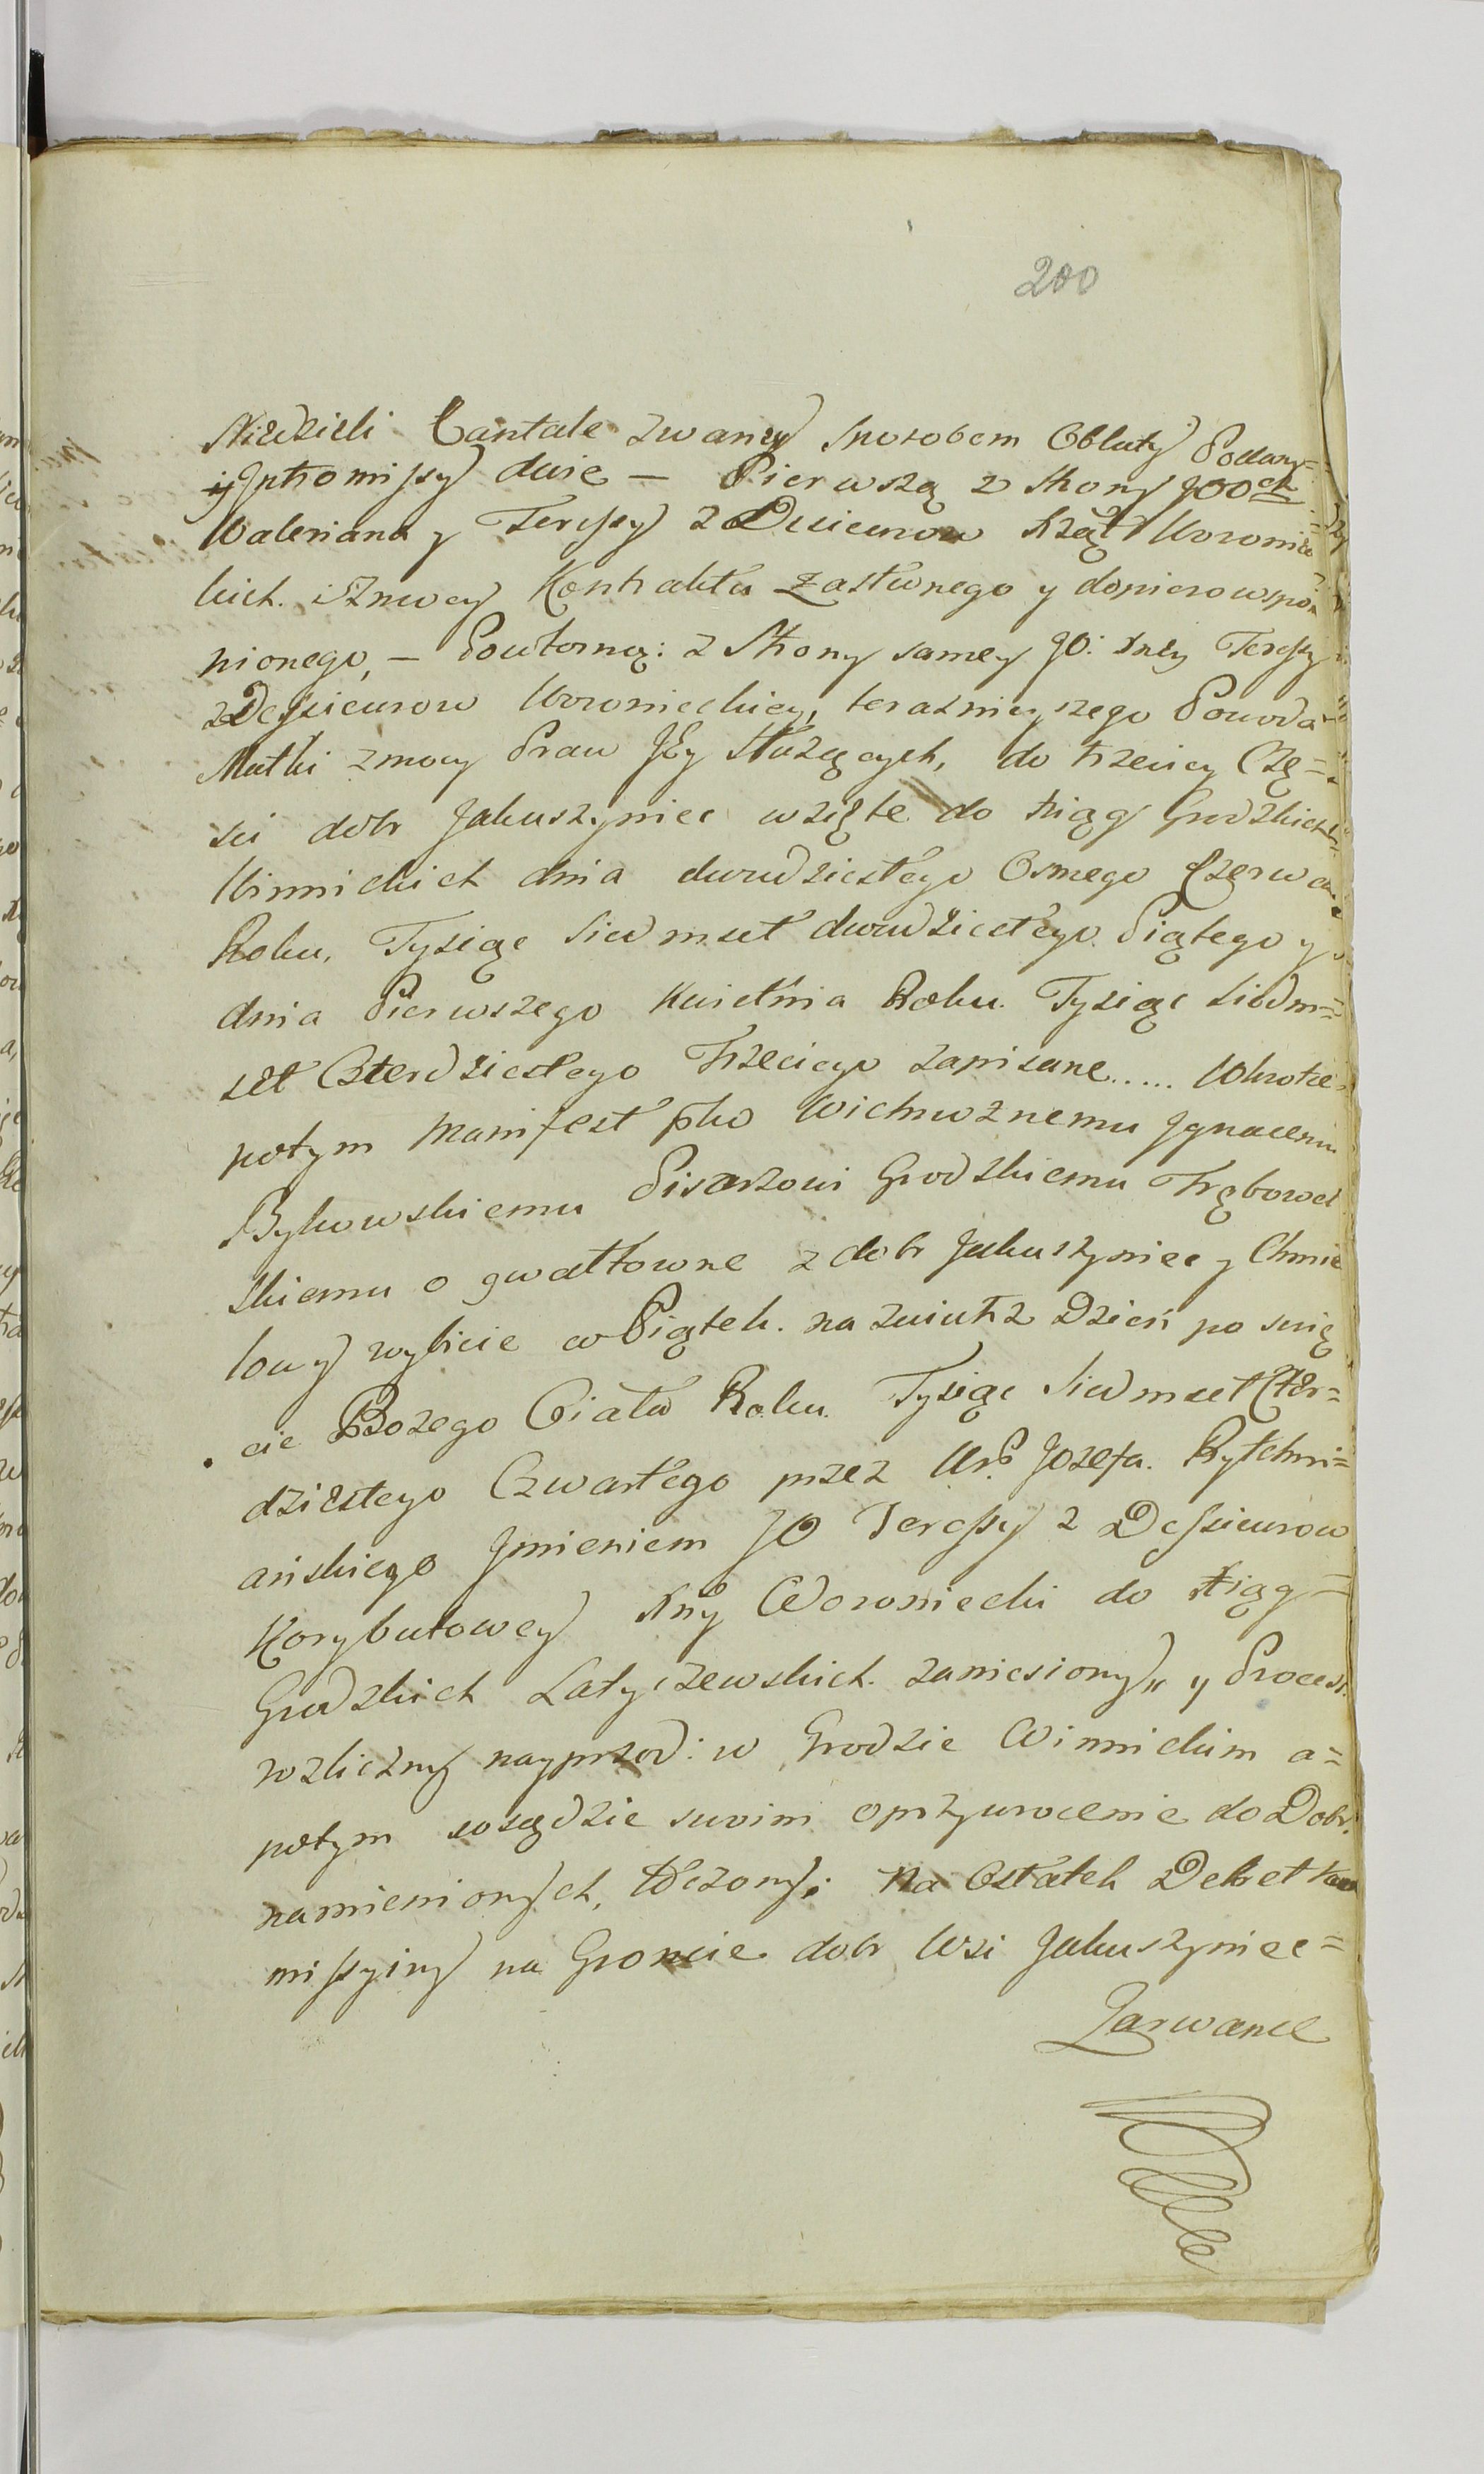 200
Niedzieli Cantate zwaney sposobem Oblaty Podany=
y Jntromissy dwie — Pierwszą z strony JOOch
Waleriana y Teressy z Desieurow Xżąt Woroniec
kich. z mocy Kontraktu zastawnego y dopiero wspo
nionego, — Powtorną: z Strony samey JO: Xny Teressy
z Dessieurow Woronieckiey, teraznieyszego Powoda
Matki z mocy Praw Jey służących, do trzeciey Czę=
sci dobr Jakuszyniec wzięte do xiąg Grodzkich
Winnickich dnia dwudziestego Osmego Czerwca
Roku, Tysiąc Siedmset dwudziestego Piątego y
dnia Pierwszego Kwietnia Roku Tysiąc Siedm=
set Czterdziestego Trzeciego zapisane..... Wkrotce
potym Manifest pko Wielmożnemu Jgnacemu
Bykowskiemu Pisarzowi Grodzkiemu Trębowel
skiemu o gwałtowne z dobr Jakuszyniec y Chmie
lowy wybicie w Piątek na zaiutrz Dzień po świę
cie Bożego Ciała Roku Tysiąc Siedmset Czter=
dziestego Czwartego przez Uro Jozefa Rytchwi=
ańskiego Jmieniem JO Teressy z Dessieurow
Korybutowey Xny Woroniecki do xiąg=
Grodzkich Latyczewskich zaniesiony, y Process
rozliczny nayprzod: w Grodzie Winnickim a=
potym w sądzie swoim o przywrocenie do Dobr
namienionych, toczony; Na Ostatek Dekret kom
missyiny na Groncie dobr Wsi Jakuszyniec=
Zarwane